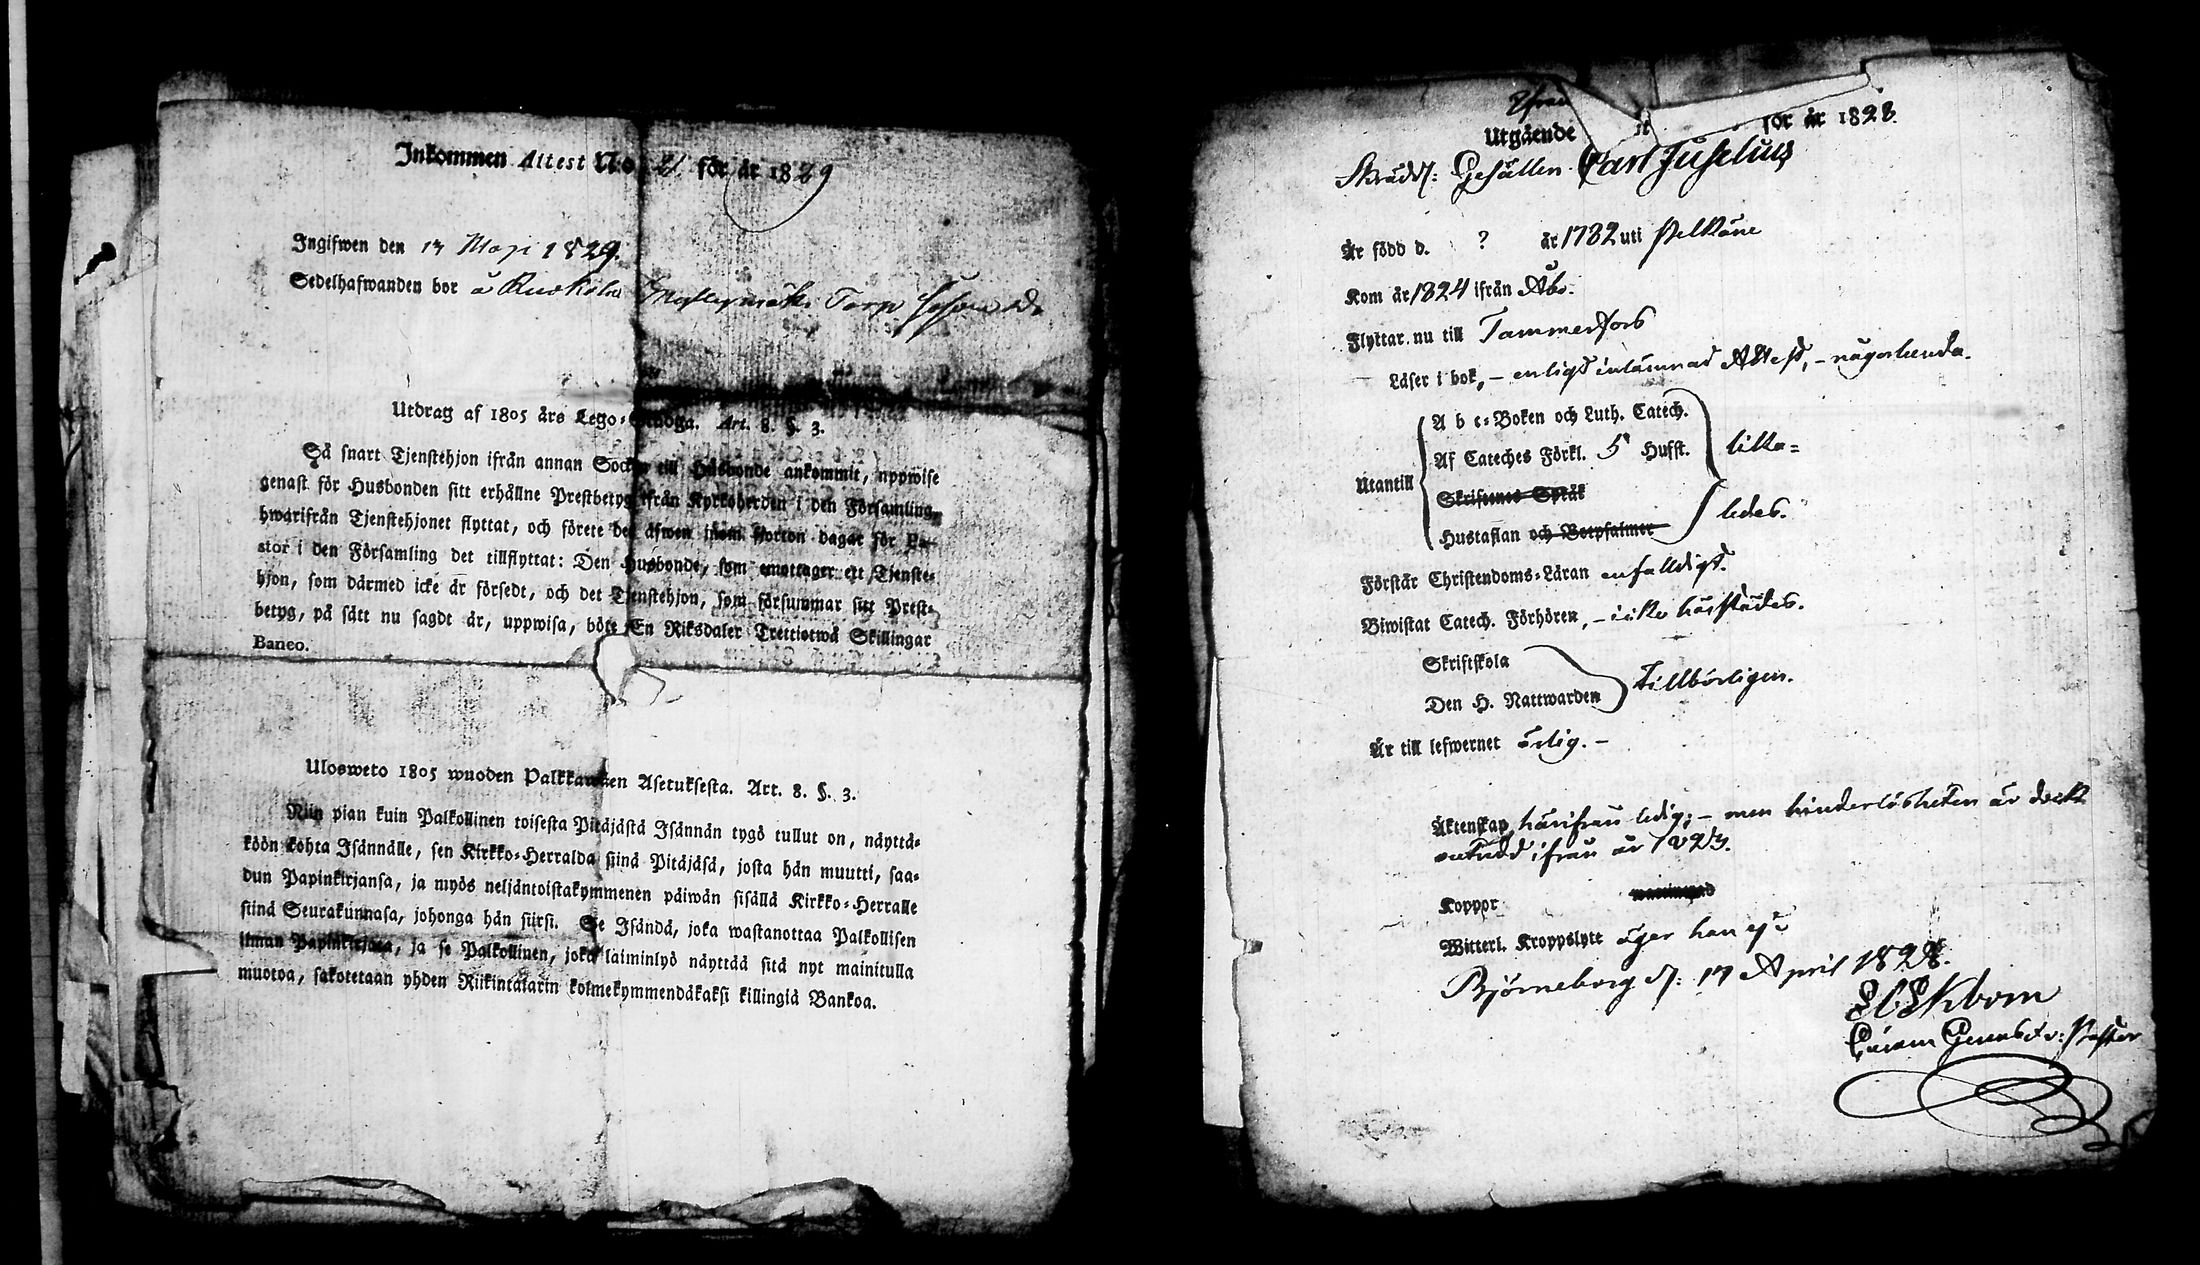 Inkommen Attest No 21. för år 1829
Ingifwen den 13 Maji 1829.
Sedelhafwanden bor å Ruokola Torp
Utdrag af 1805 års Lego-Stadga. Art. 8. §. 3.
Så snart Tjenstehjon ifrån annan Socken till Husbonde ankommit, uppwise
genast för Husbonden sitt erhållne Prestbetyg ifrån Kyrkoherden i den Församling,
hwarifrån Tjenstehjonet flyttat, och förete det äfwen inom fjorton dagar för Pa-
stor i den Församling det tillflyttat: Den Husbonde, som emottager ett Tjenste-
hjon, som därmed icke är försedt, och det Tjenstehjon, som försummar sitt Prest-
betyg, på sätt nu sagdt är, uppwisa, böte En Riksdaler Trettiotwå Skillingar
Banco.
Ulosweto 1805 wuoden Palkkawäen Asetuksesta. Art. 8. §. 3.
Niin pian kuin Palkollinen toisesta Pitäjästä Isännän tygö tullut on, näyttä-
köön kohta Isännälle, sen Kirkko-Herralda siinä Pitäjäsä, josta hän muutti, saa-
dun Papinkirjansa, ja myös neljäntoistakymmenen päiwän sisällä Kirkko-Herralle
siinä Seurakunnasa, johonga hän siirsi. Se Isändä, joka wastanottaa Palkollisen
ilman Papinkirjata, ja se Palkollinen, joka laiminlyö näyttää sitä nyt mainitulla
muotoa, sakotetaan yhden Riikintalarin kolmekymmendäkaksi killingiä Bankoa.
Utgående för år 1828.
Skrädd: Gesällen Carl Juselius
Är född d. ? år 1782 uti Pelkäne
Kom år 1824 ifrån Åbo.
Flyttar nu till Tammerfors
Läser i bok, – enligt inlämnad Attest, – någorlunda.
Utantill
A b c-Boken och Luth. Catech.
Af Cateches Förkl. 5 Hufst.
Skriftenes Språk
Hustaflan och Botpsalmer
lika-
ledes.
Förstår Christendoms-Läran enfalldigt.
Biwistat Catech. Förhören, – icke härstädes.
Skriftskola
Den H. Nattwarden
tillbörligen.
Är till lefwernet ärlig. –
Äktenskap härifrån ledig; – men hinderlösheten är dock
ifrån år 1823.
Koppor
Witterl. Kroppslytt äger han ej.
Björneborg d: 17 April 1828.
Ekbom
Pastor